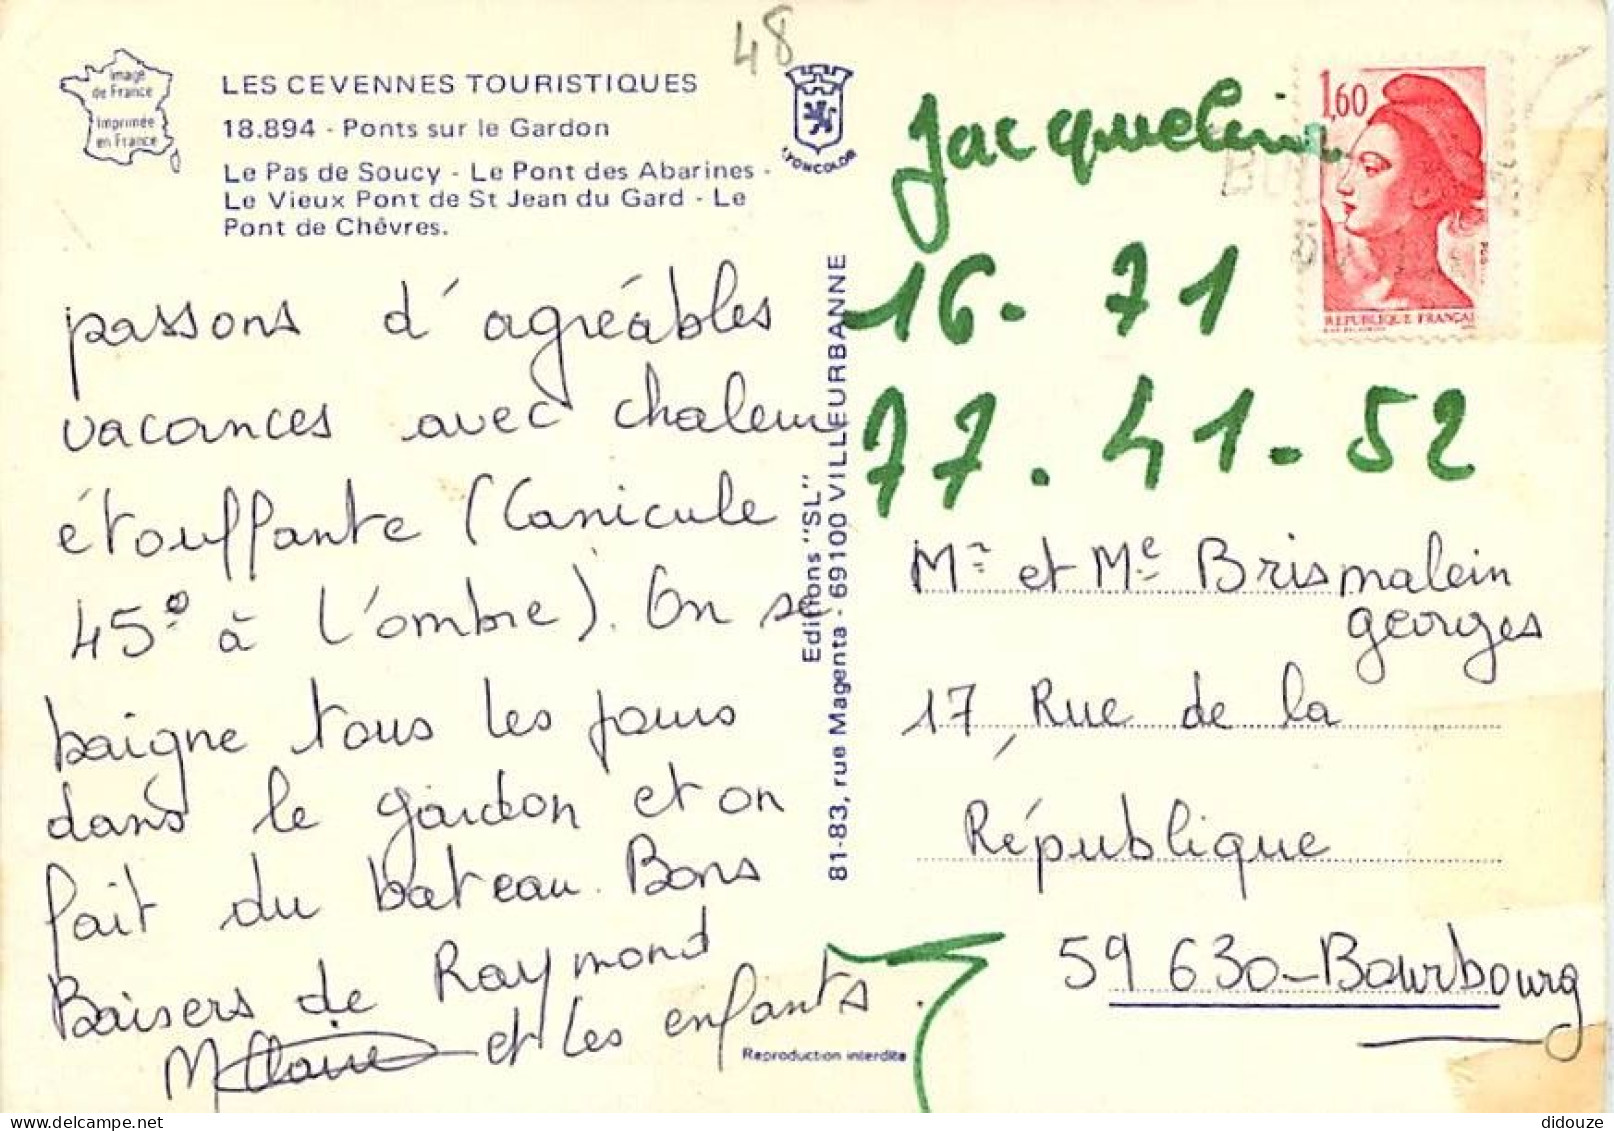 48
Image
de France
Imprimée
en France
LES CEVENNES TOURISTIQUES
18.894 - Ponts sur le Gardon
Le Pas de Soucy - Le Pont des Abarines -
Le Vieux Pont de St Jean du Gard - Le
Pont de Chêvres.
LYONCOLOR
passons d'agréables
vacances avec chaleur
étouffante (Canicule
45° à l'ombre). On se
baigne tous les jours
dans le gardon et on
fait du bateau. Bons
Baisers de Raymond
M Claire et les enfants.
Editions "SL"
81-83, rue Magenta - 69100 VILLEURBANNE
Reproduction interdite
Jacqueline
16. 71
77. 41. 52
1,60
REPUBLIQUE FRANÇAI
Mr et Me Brismalein
georges
17, Rue de la
République
59 630 - Bourbourg
didouze